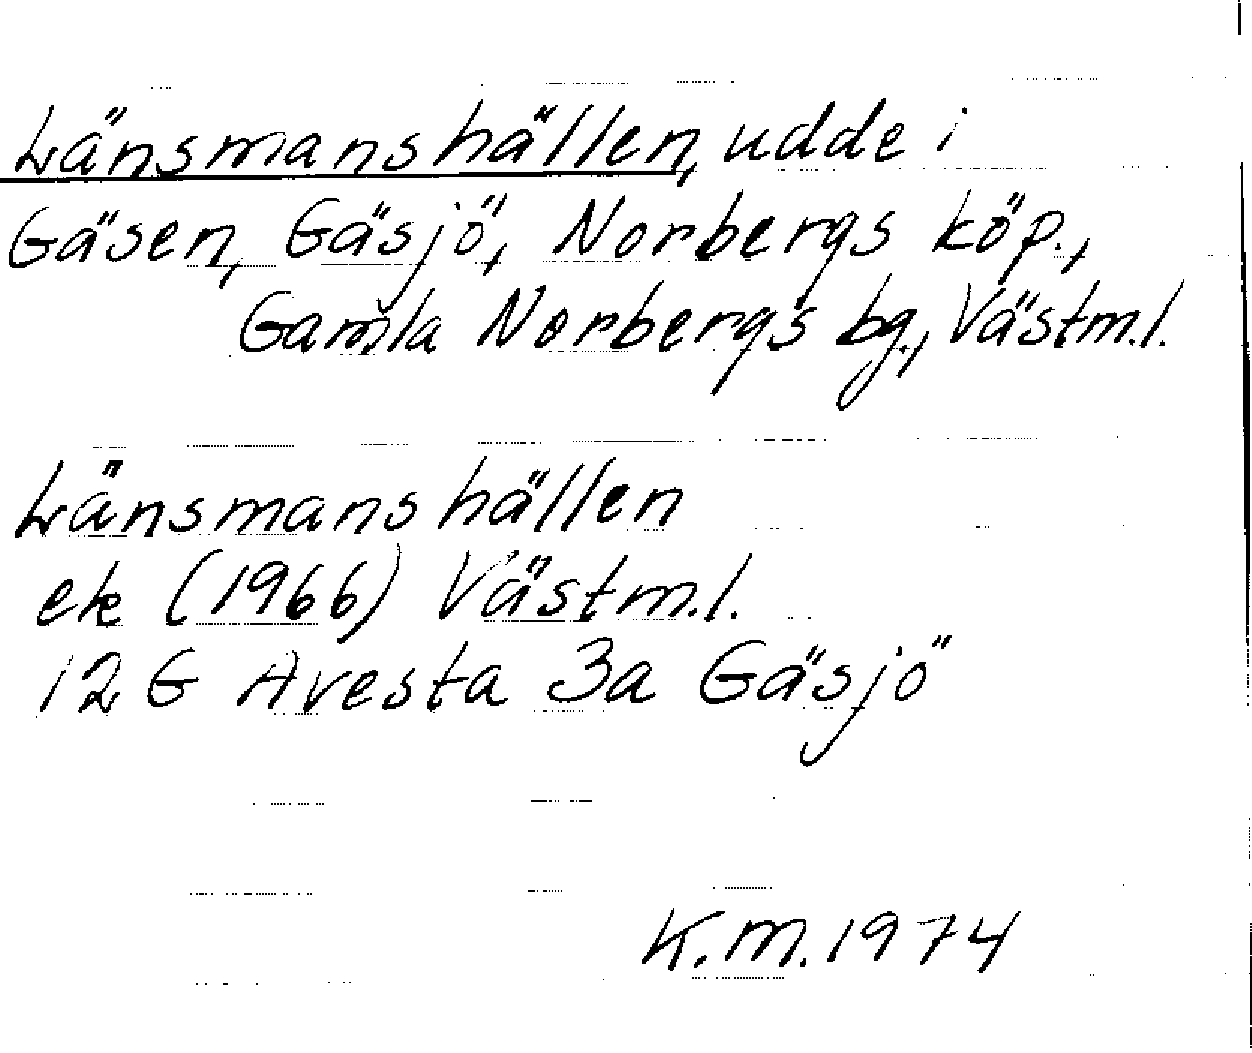 Länsmanshällen, udde i
Gäsen, Gäsjö, Norbergs köp.,
Gamla Norbergs bg., Västm.l.
Länsmanshällen
ek (1966) Västm.l.
12 G Avesta 3a Gäsjö
K.M. 1974